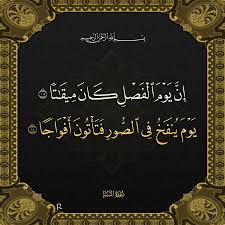 بِسْمِ اللَّهِ الرَّحْمَٰنِ الرَّحِيمِ
إِنَّ يَوْمَ ٱلْفَصْلِ كَانَ مِيقَٰتًا ١٧
يَوْمَ يُنفَخُ فِى ٱلصُّورِ فَتَأْتُونَ أَفْوَاجًا ١٨